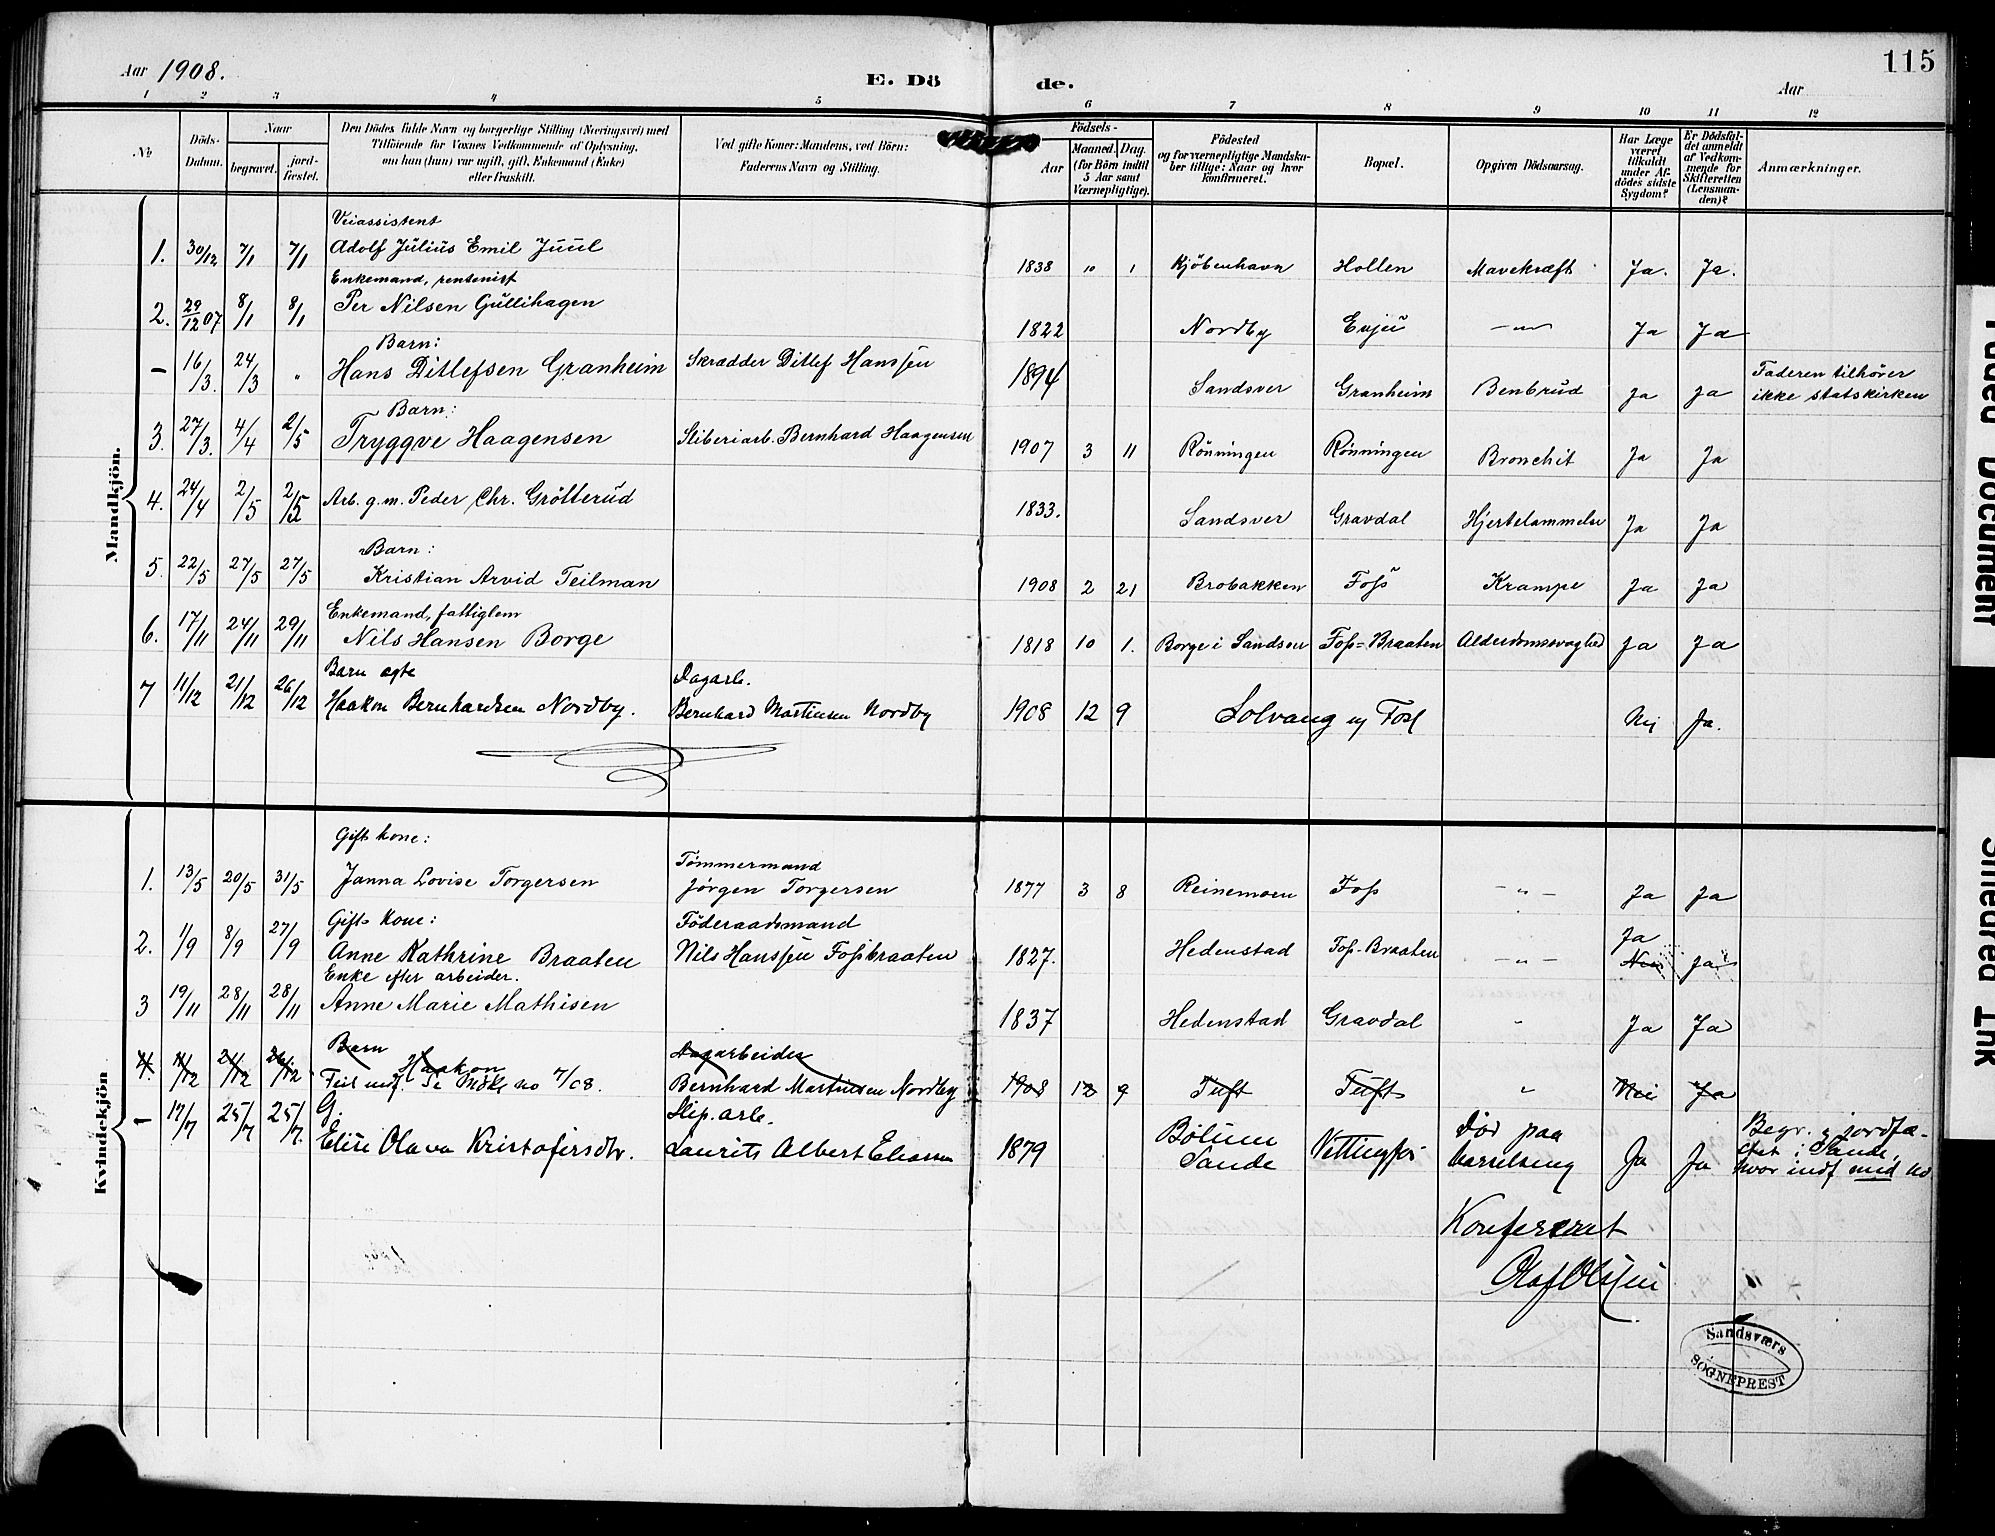 Aar 1908. E. Dö de. Aar 115
1 2 3 4 5 6 7 8 9 10 11 12
No Döds-Datum. Naar begravet. jordfæstet. Den Dödes fulde Navn og borgerlige Stilling (Næringsvei) med Tilföiende for Voxnes Vedkommende af Oplysning, om han (hun) var ugift, gift, Enkemand (Enke) eller fraskilt. Ved gifte Koner: Mandens, ved Börn: Faderens Navn og Stilling. Födsels- Aar Maaned. Dag. (for Börn indtil 5 Aar samt Værnepligtige). Födested og for værnepligtige Mandskaber tillige: Naar og hvor konfirmeret. Bopæl. Opgiven Dödsaarsag. Har Læge været tilkaldt under Afdödes sidste Sygdom? Er Dödsfaldet anmeldt af Vedkommende for Skifteretten (Lensmanden)? Anmærkninger.
Mandkjön.
Veiassistent
1. 30/12 7/1 7/1 Adolf Julius Emil Juul 1838 10 1 Kjöbenhavn Hollen Mavekræft Ja. Ja.
Enkemand, rentenist
2. 29/12 07 8/1 8/1 Per Nilsen Gullihagen 1822 Nordby Evju -"- Ja Ja
Barn:
– 16/3. 24/3 " Hans Ditlefsen Granheim Skrædder Ditlef Hanssen 1894 Sandsver Granheim Benbrud Ja Ja Faderen tilhörer
ikke statskirken
Barn:
3. 27/3. 4/4 2/5 Tryggve Haagensen Sliberiarb. Bernhard Haagensen 1907 3 11 Rönningen Rönningen Bronchit Ja Ja
4. 24/4 2/5 2/5 Arb. g.m. Peder Chr. Grötterud 1833. Sandsver Gravdal Hjertelammelse Ja Ja
Barn:
5. 22/5 27/5 27/5 Kristian Arvid Teilman 1908 2 21 Brobakken Foss Krampe Ja Ja
Enkemand, fattiglem
6. 17/11 24/11 29/11 Nils Hansen Borge 1818 10 1. Borge i Sandsver Foss-Braaten Alderdomssvaghed Ja Ja
Barn ægte Dagarb.
7 11/12 21/12 26/12 Haakon Bernhardsen Nordby. Bernhard Martinsen Nordby 1908 12 9 Solvang u/ Foss Nei Ja.
Kvindekjön
Gift kone: Tömmermand
1. 13/5 20/5 31/5 Janna Lovise Torgersen Jörgen Torgersen 1877 3 8 Reinemoen Foss -"- Ja Ja
Gift kone: Föderaadsmand
2. 1/9 8/9 27/9 Anne Kathrine Braaten Nils Hanssen Fossbraaten 1827. Hedenstad Foss-Braaten -"- Ja
Nei Ja
Enke efter arbeider.
3 19/11 28/11 28/11 Anne Marie Mathisen 1837 Hedenstad Gravdal " Ja Ja
Barn Haakon Dagarbeider
4. 11/12 21/12 26/12 Feil indf. Se Mdkj. no 7/08. Bernhard Martinsen Nordby 1908 12 9 Tuft Tuft " Nei Ja
G. Slip.arb.
– 17/7 25/7 25/7. Elise Olava Kristofersdtr. Laurits Albert Eliassen 1879 Bölum Sande Vittingfos Död paa barselseng Ja Ja Begr. & jordfæ-
stet i Sande,
hvor indf med no
Konfereret
Olaf Olssen
Sandsværs
SOGNEPREST
Faded Document
Smeared Ink